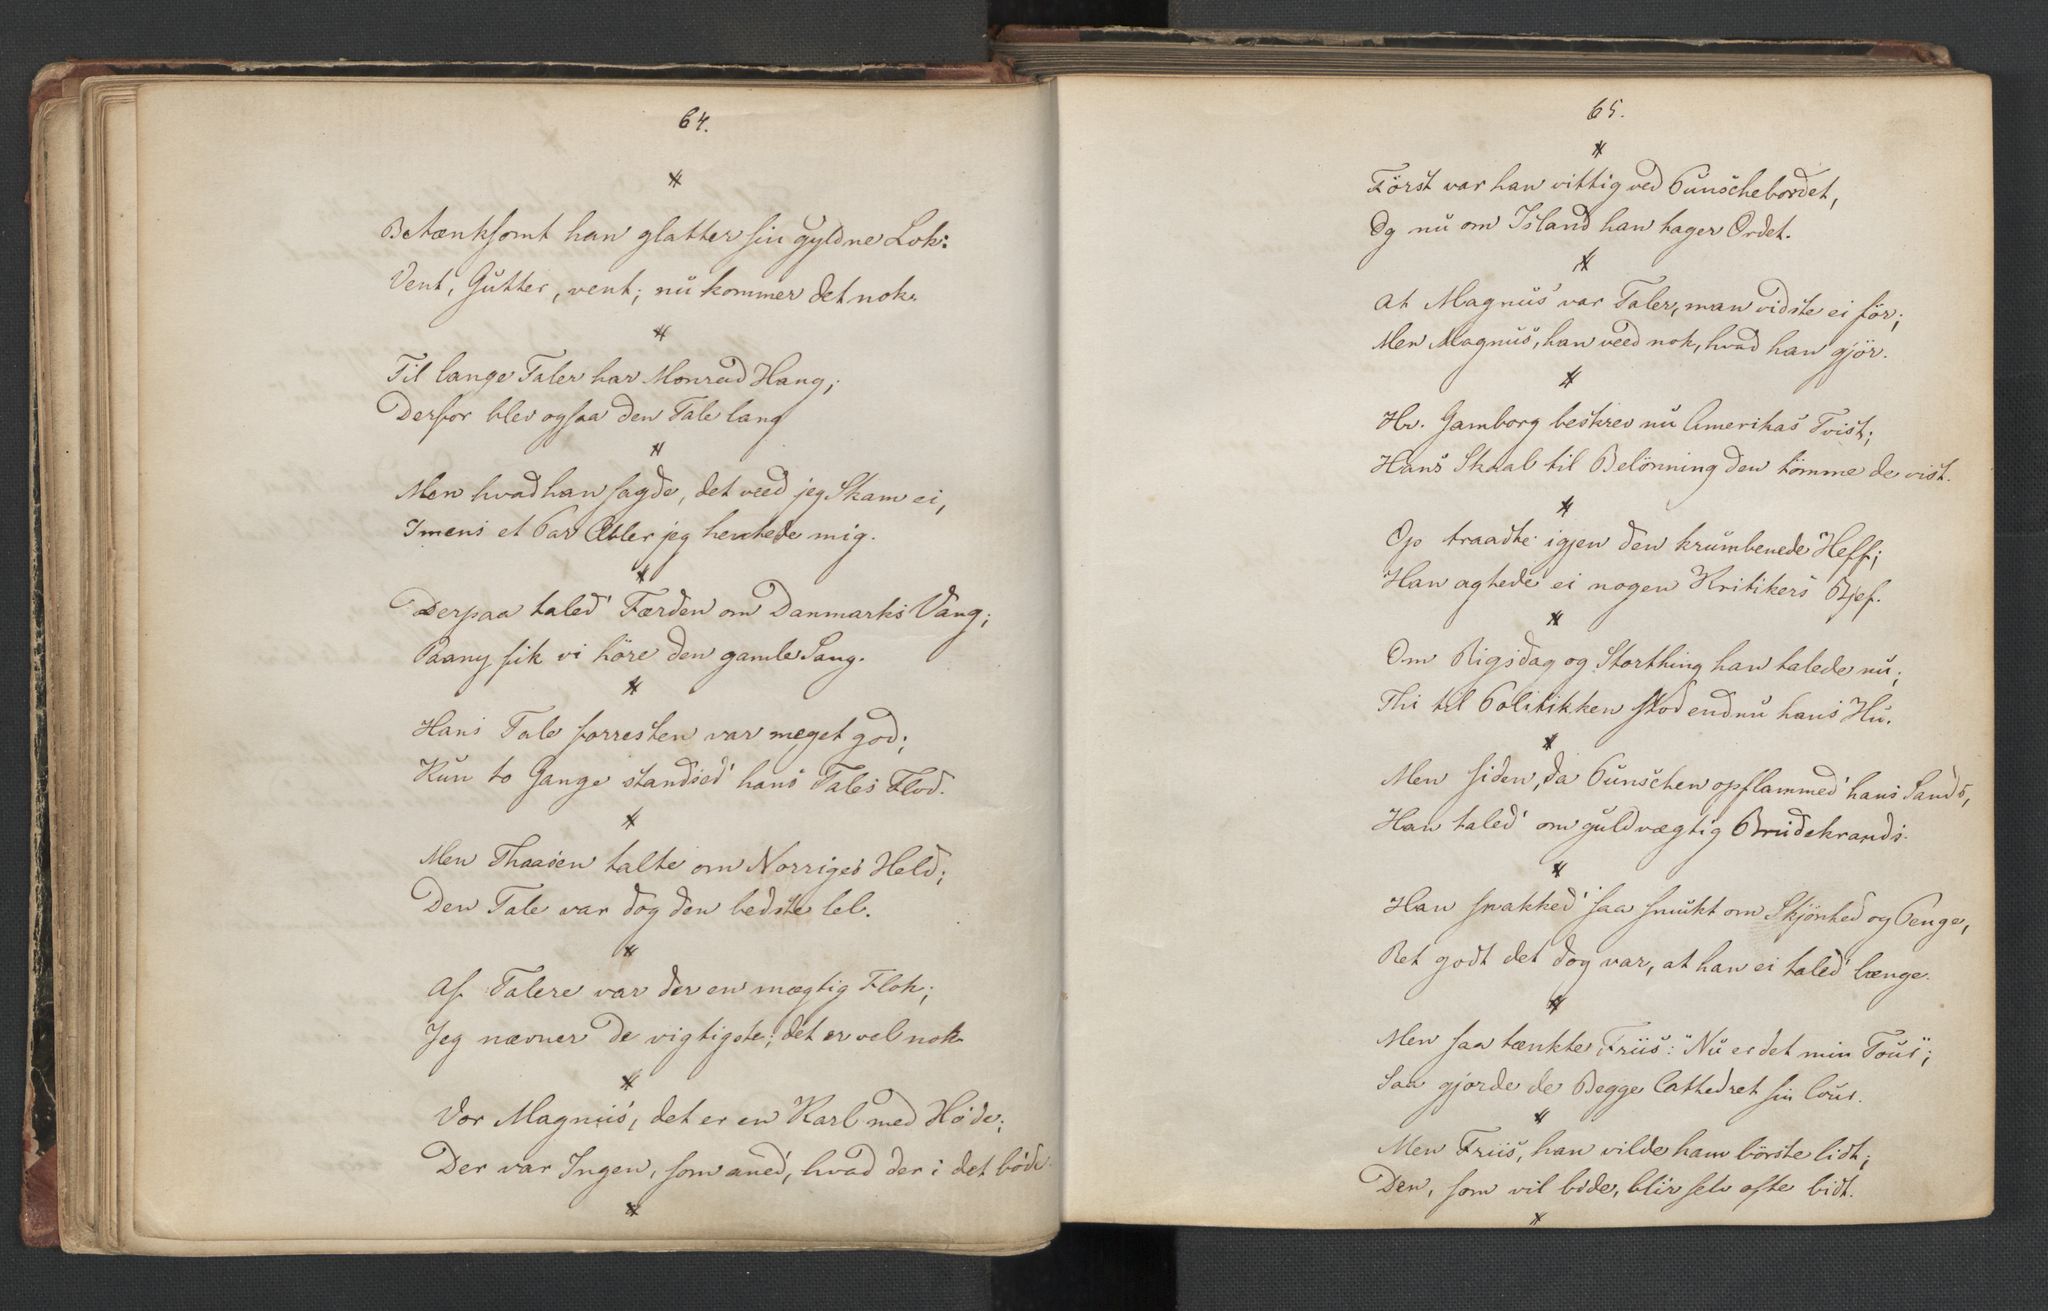 64.
Betænksomt han glatter sin gyldne Lok:
Vent, Gutter, vent; nu kommer det nok.
Til lange Taler har Monrad Hang;
Derfor blev ogsaa den Tale lang
Men hvad han sagde, det veed jeg Skam ei,
Imens et Par Æbler jeg hentede mig.
Derpaa taled' Færden om Danmarks Vang;
Paany fik vi höre den gamle Sang.
Hans Tale forresten var meget god;
Kun to Gange standsed' hans Tales Flod.
Men Thaasen talte om Norriges Held;
Den Tale var dog den bedste lel.
Af Talere var der en mægtig Flok;
Jeg nævner de vigtigste; det er vel nok
Vor Magnus, det er en Karl med Hode;
Der var Ingen, som aned', hvad der i det bode.
65.
Först var han vittig ved Punschebordet,
Og nu om Island han tager Ordet.
At Magnus var Taler, man vidste ei för;
Men Magnus, han veed nok, hvad han gjör.
Hr. Gamborg beskrev nu Amerikas Tvist;
Hans Skaal til Belönning den tömme de vist.
Op traadte igjen den krumbenede Heff;
Han agtede ei nogen Kritikers Bjef.
Om Rigsdag og Storthing han talede nu;
Thi til Politikken stod endnu hans Hu.
Men siden, da Punschen opflammed' hans Sands,
Han taled' om guldvægtig Brudekrands.
Han snakked' saa smukt om Skjönhed og Penge,
Ret godt det dog var, at han ei taled' længe.
Men saa tænkte Friis: "Nu er det min Tour";
Saa gjorde de Begge Cathedret sin Cour.
Men Friis, han vilde ham börste lidt;
Den, som vil bide, blir selv ofte bidt.